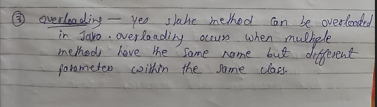 ③ overloading - yes static method can be overloaded
in Java. overloading occurs when multiple
methods have the same name but different
parameters within the same class.